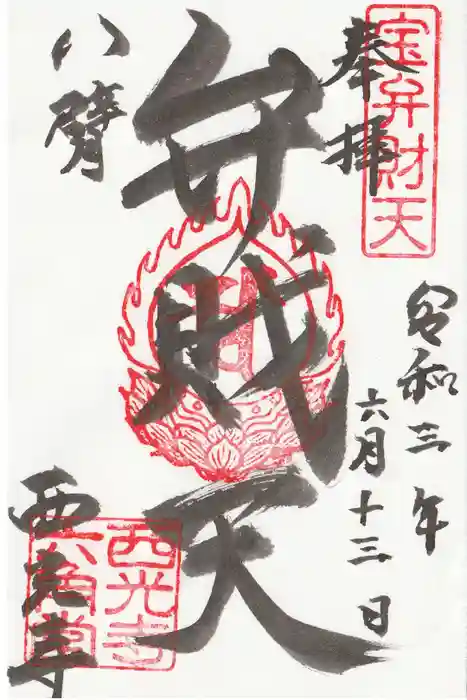 奉拝
宝弁財天
令和三年
六月十三日
八臂
弁財天
西光寺
西光寺
六角堂